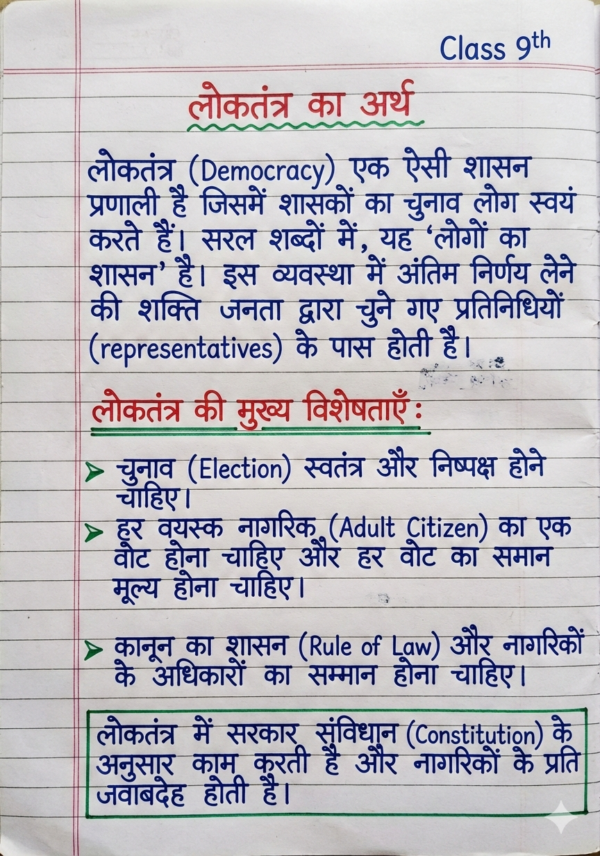 Class 9th
लोकतंत्र का अर्थ
लोकतंत्र (Democracy) एक ऐसी शासन
प्रणाली है जिसमें शासकों का चुनाव लोग स्वयं
करते हैं। सरल शब्दों में, यह ‘लोगों का
शासन’ है। इस व्यवस्था में अंतिम निर्णय लेने
की शक्ति जनता द्वारा चुने गए प्रतिनिधियों
(representatives) के पास होती है।
लोकतंत्र की मुख्य विशेषताएँ:
➤ चुनाव (Election) स्वतंत्र और निष्पक्ष होने
चाहिए।
➤ हर वयस्क नागरिक (Adult Citizen) का एक
वोट होना चाहिए और हर वोट का समान
मूल्य होना चाहिए।
➤ कानून का शासन (Rule of Law) और नागरिकों
के अधिकारों का सम्मान होना चाहिए।
लोकतंत्र में सरकार संविधान (Constitution) के
अनुसार काम करती है और नागरिकों के प्रति
जवाबदेह होती है।